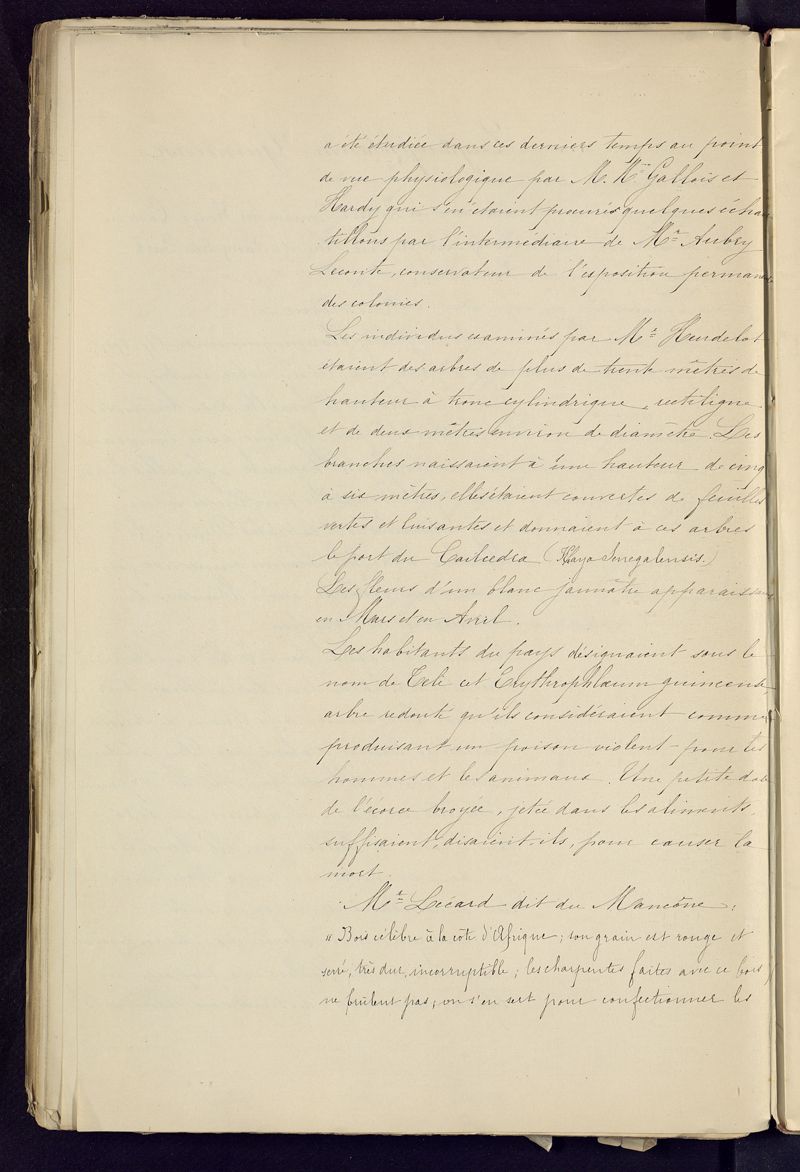 a été étudiée dans ces derniers temps au point
de vue physiologique par M. Mrs Gallois et
Hardy qui s'en étaient procurés quelques échan
tillons par l'intermédiaire de Mr Aubry
Leconte, conservateur de l'exposition permanente
des colonies.
Les individus examinés par Mr Heudelot
étaient des arbres de plus de trente mètres de
hauteur à tronc cylindrique, rectiligne
et de deux mètres environ de diamètre. Les
branches naissaient à une hauteur de cinq
à six mètres, elles étaient couvertes de feuilles
vertes et luisantes et donnaient à ces arbres
le port du Cailcedra (Khaya Senegalensis.)
Les fleurs d'un blanc jaunâtre apparaissaient
en Mars et en Avril.
Les habitants du pays désignaient sous le
nom de Teli cet Erythrophlœum guineense,
arbre redouté qu'ils considéraient comme
produisant un poison violent pour les
hommes et les animaux. Une petite dose
de l'écorce broyée, jetée dans les aliments,
suffisaient, disaient-ils, pour causer la
mort.
Mr Lécard dit du Mancône :
" Bois célèbre à la côte d'Afrique ; son grain est rouge et
serré, très dur, incorruptible ; les charpentes faites avec ce bois
ne brûlent pas ; on s'en sert pour confectionner les